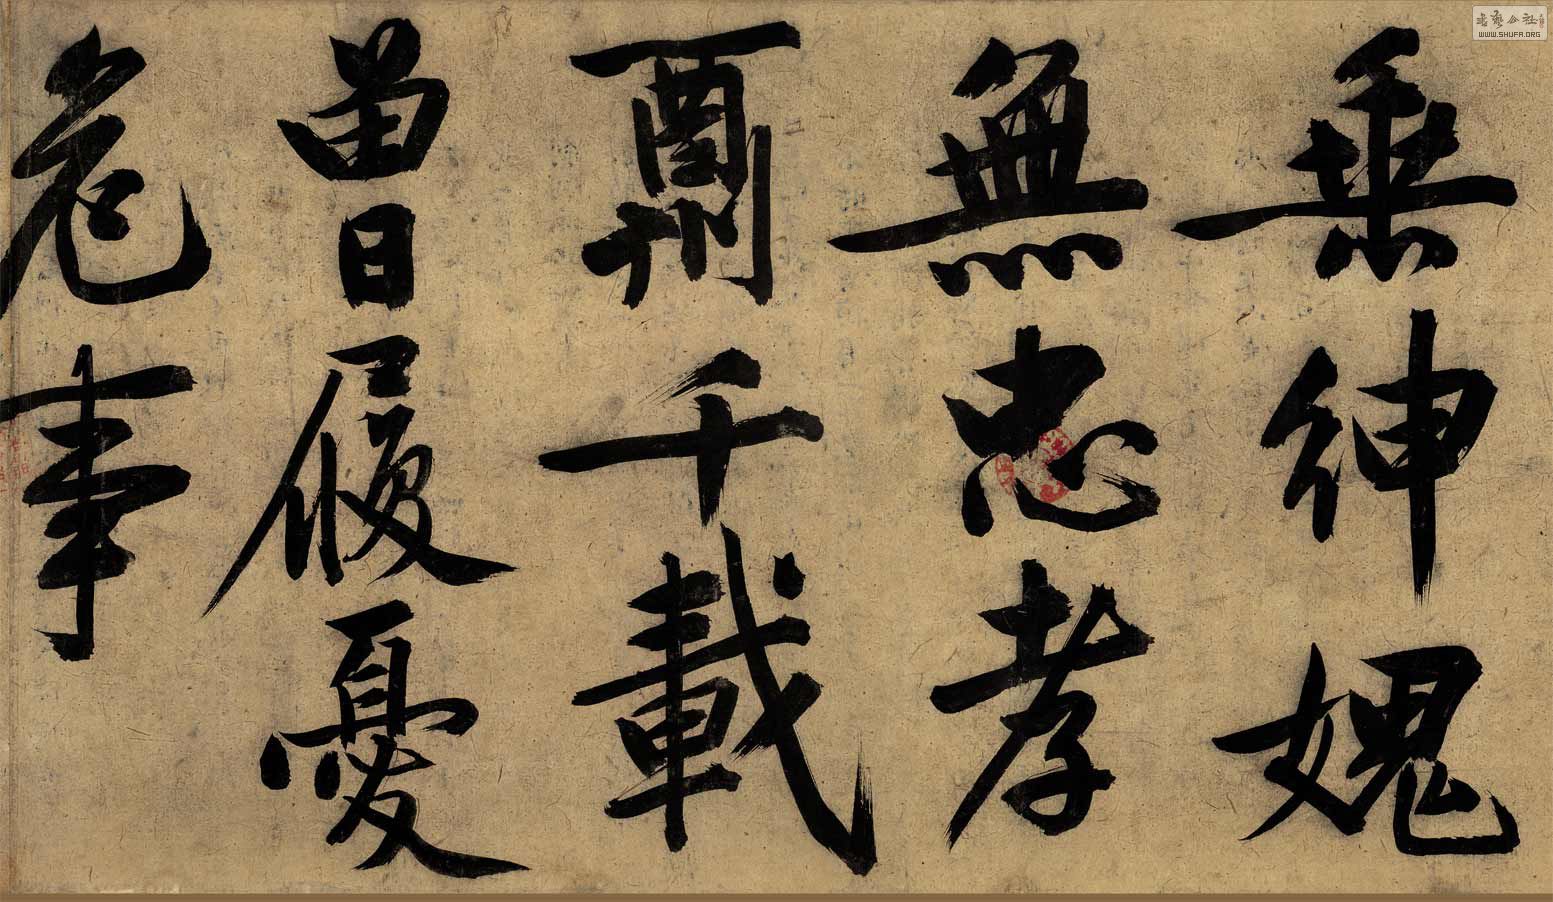 垂紳媿
無忠孝
酬千載
曾履憂
危事
書藝公社
WWW.SHUFA.ORG